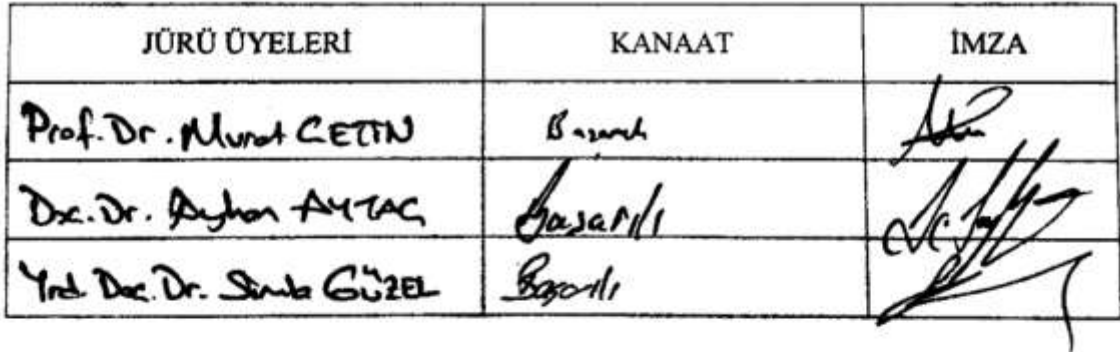 JÜRÜ ÜYELERİ KANAAT İMZA
Prof. Dr. Murat ÇETİN Başarılı
Doç. Dr. Ayhan AYTAÇ Başarılı
Yrd. Doç. Dr. GÜZEL Başarılı